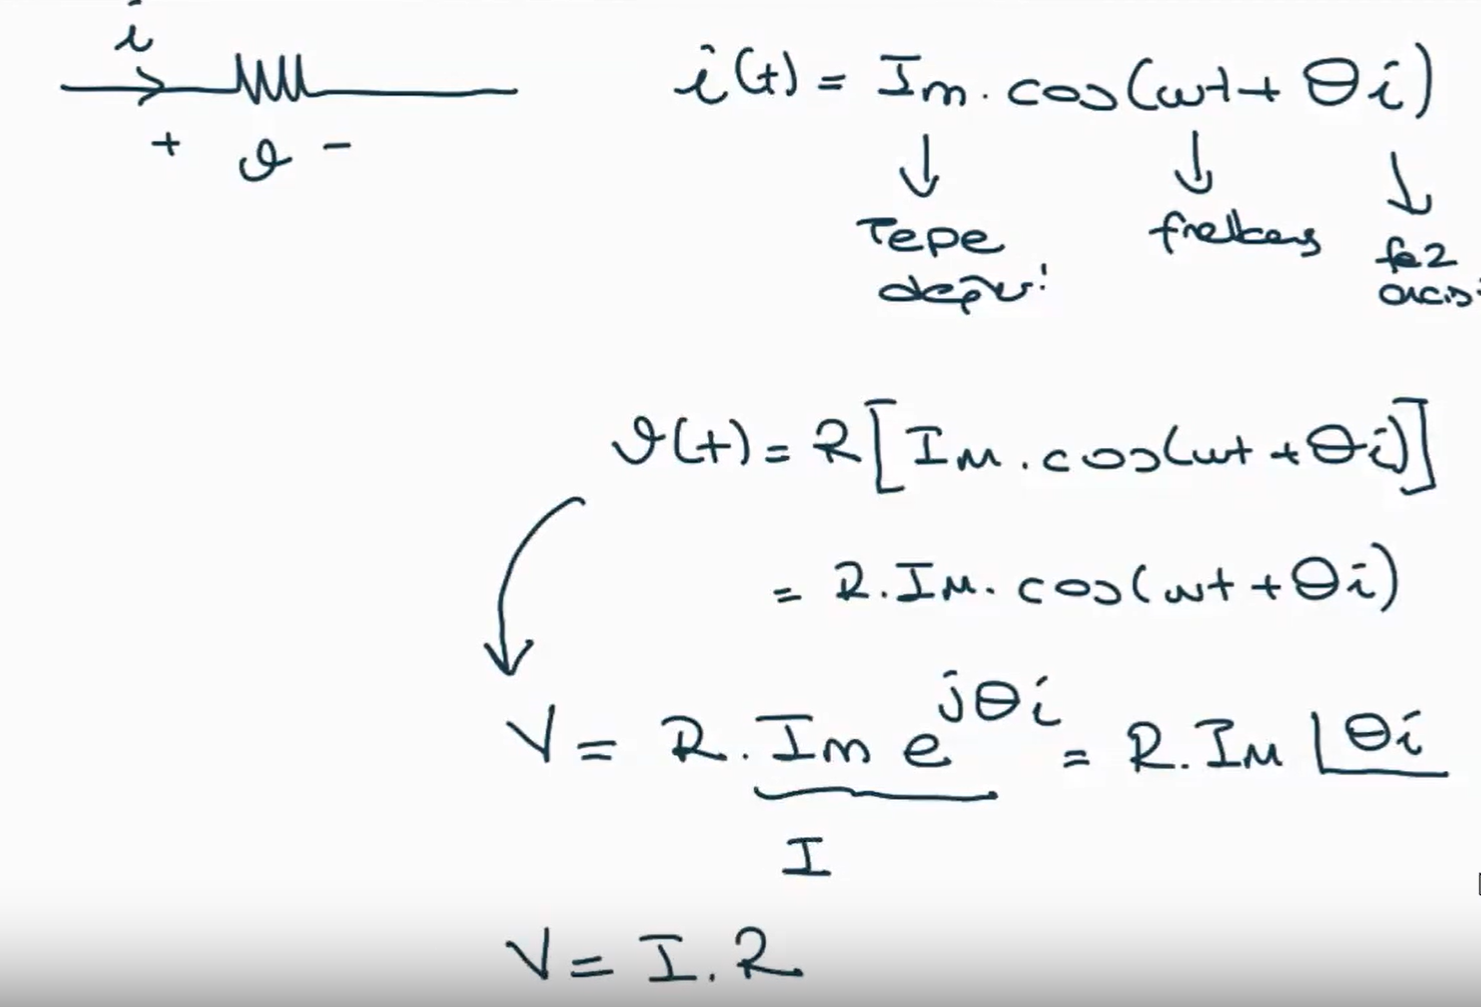 i
+ v -
i(t) = Im . cos(wt + θi)
Tepe değeri
frekans
faz açısı
v(t) = R[Im . cos(wt + θi)]
= R . Im . cos(wt + θi)
V = R . Im e^jθi = R . Im ∠θi
I
V = I . R